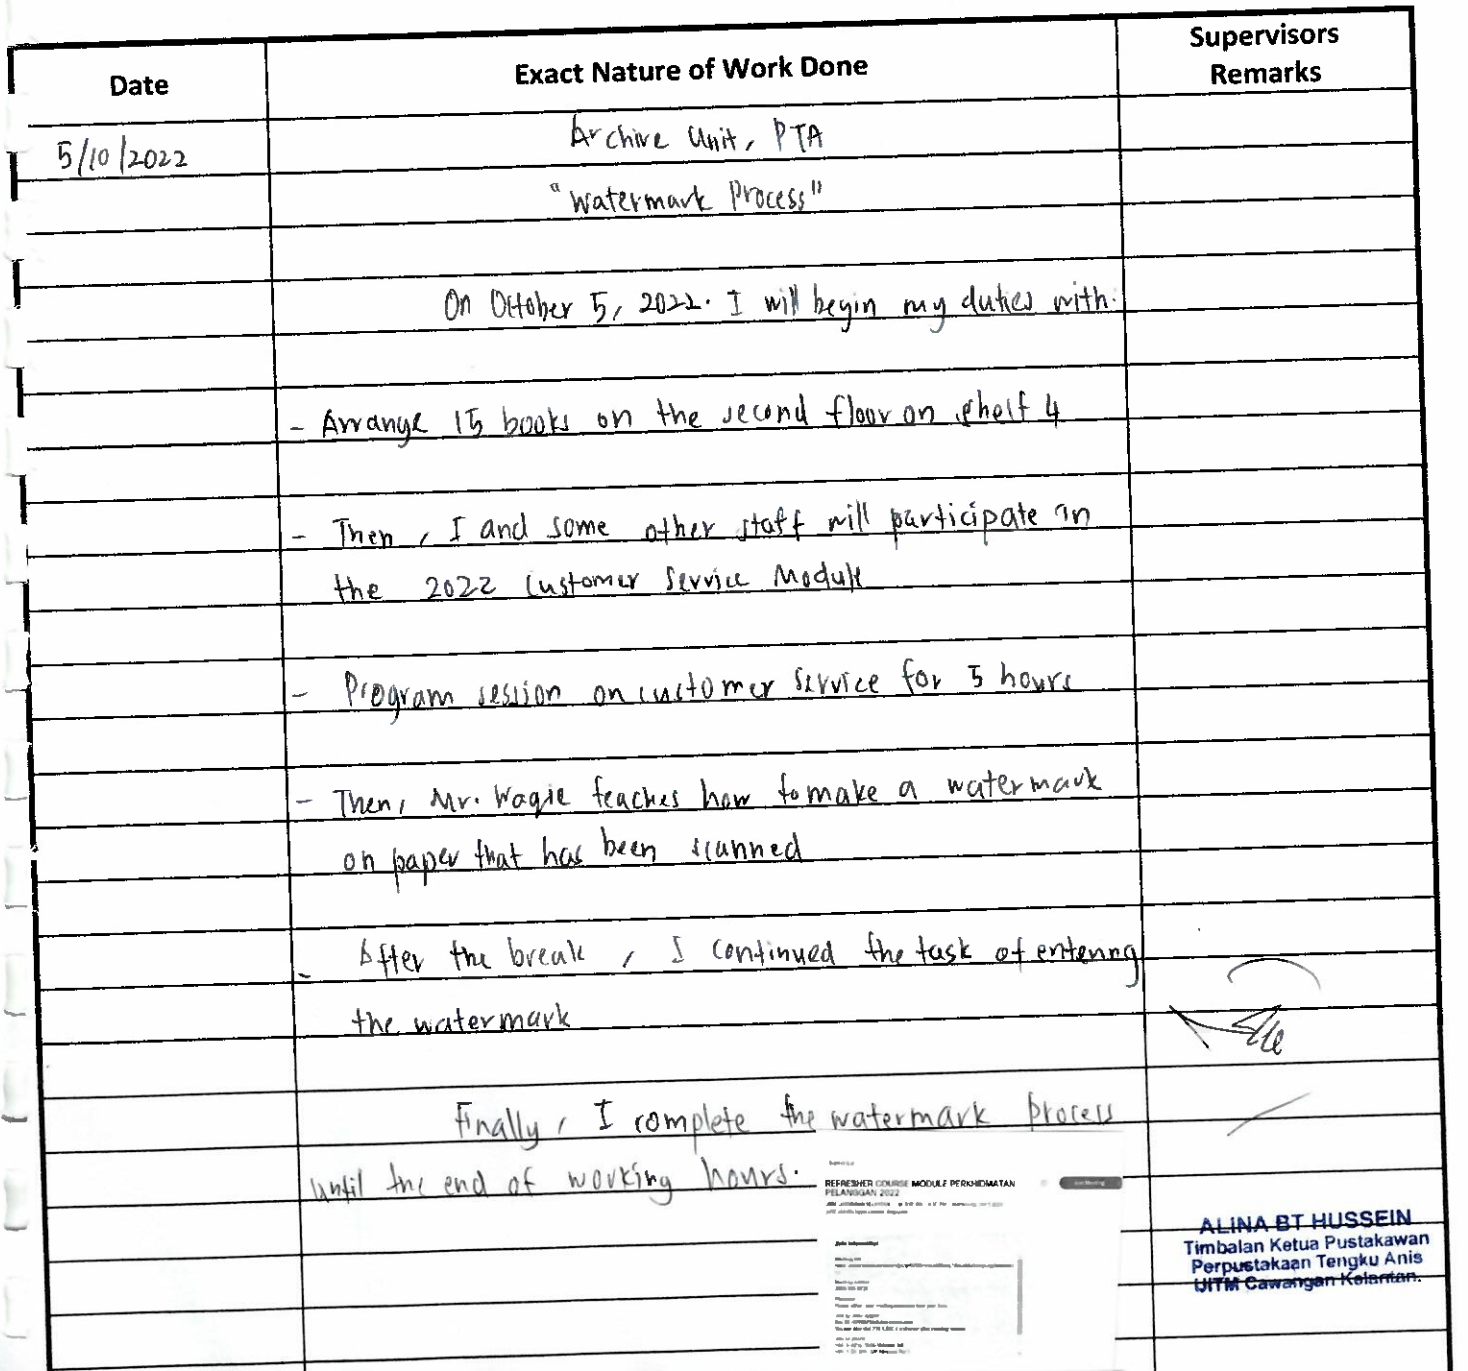 Date
Exact Nature of Work Done
Supervisors
Remarks
5/10/2022
Archive Unit, PTA
"Watermark Process"
On October 5, 2022. I will begin my duties with:
- Arrange 15 books on the second floor on shelf 4
- Then, I and some other staff will participate in
the 2022 Customer Service Module
- Program session on customer service for 5 hours
- Then, Mr. Wagie teaches how to make a watermark
on paper that has been scanned
- After the break, I continued the task of entering
the watermark
Finally, I complete the watermark process
until the end of working hours.
REFRESHER COURSE MODULE PERKHIDMATAN
PELANGGAN 2022
ALINA BT HUSSEIN
Timbalan Ketua Pustakawan
Perpustakaan Tengku Anis
UITM Cawangan Kelantan.